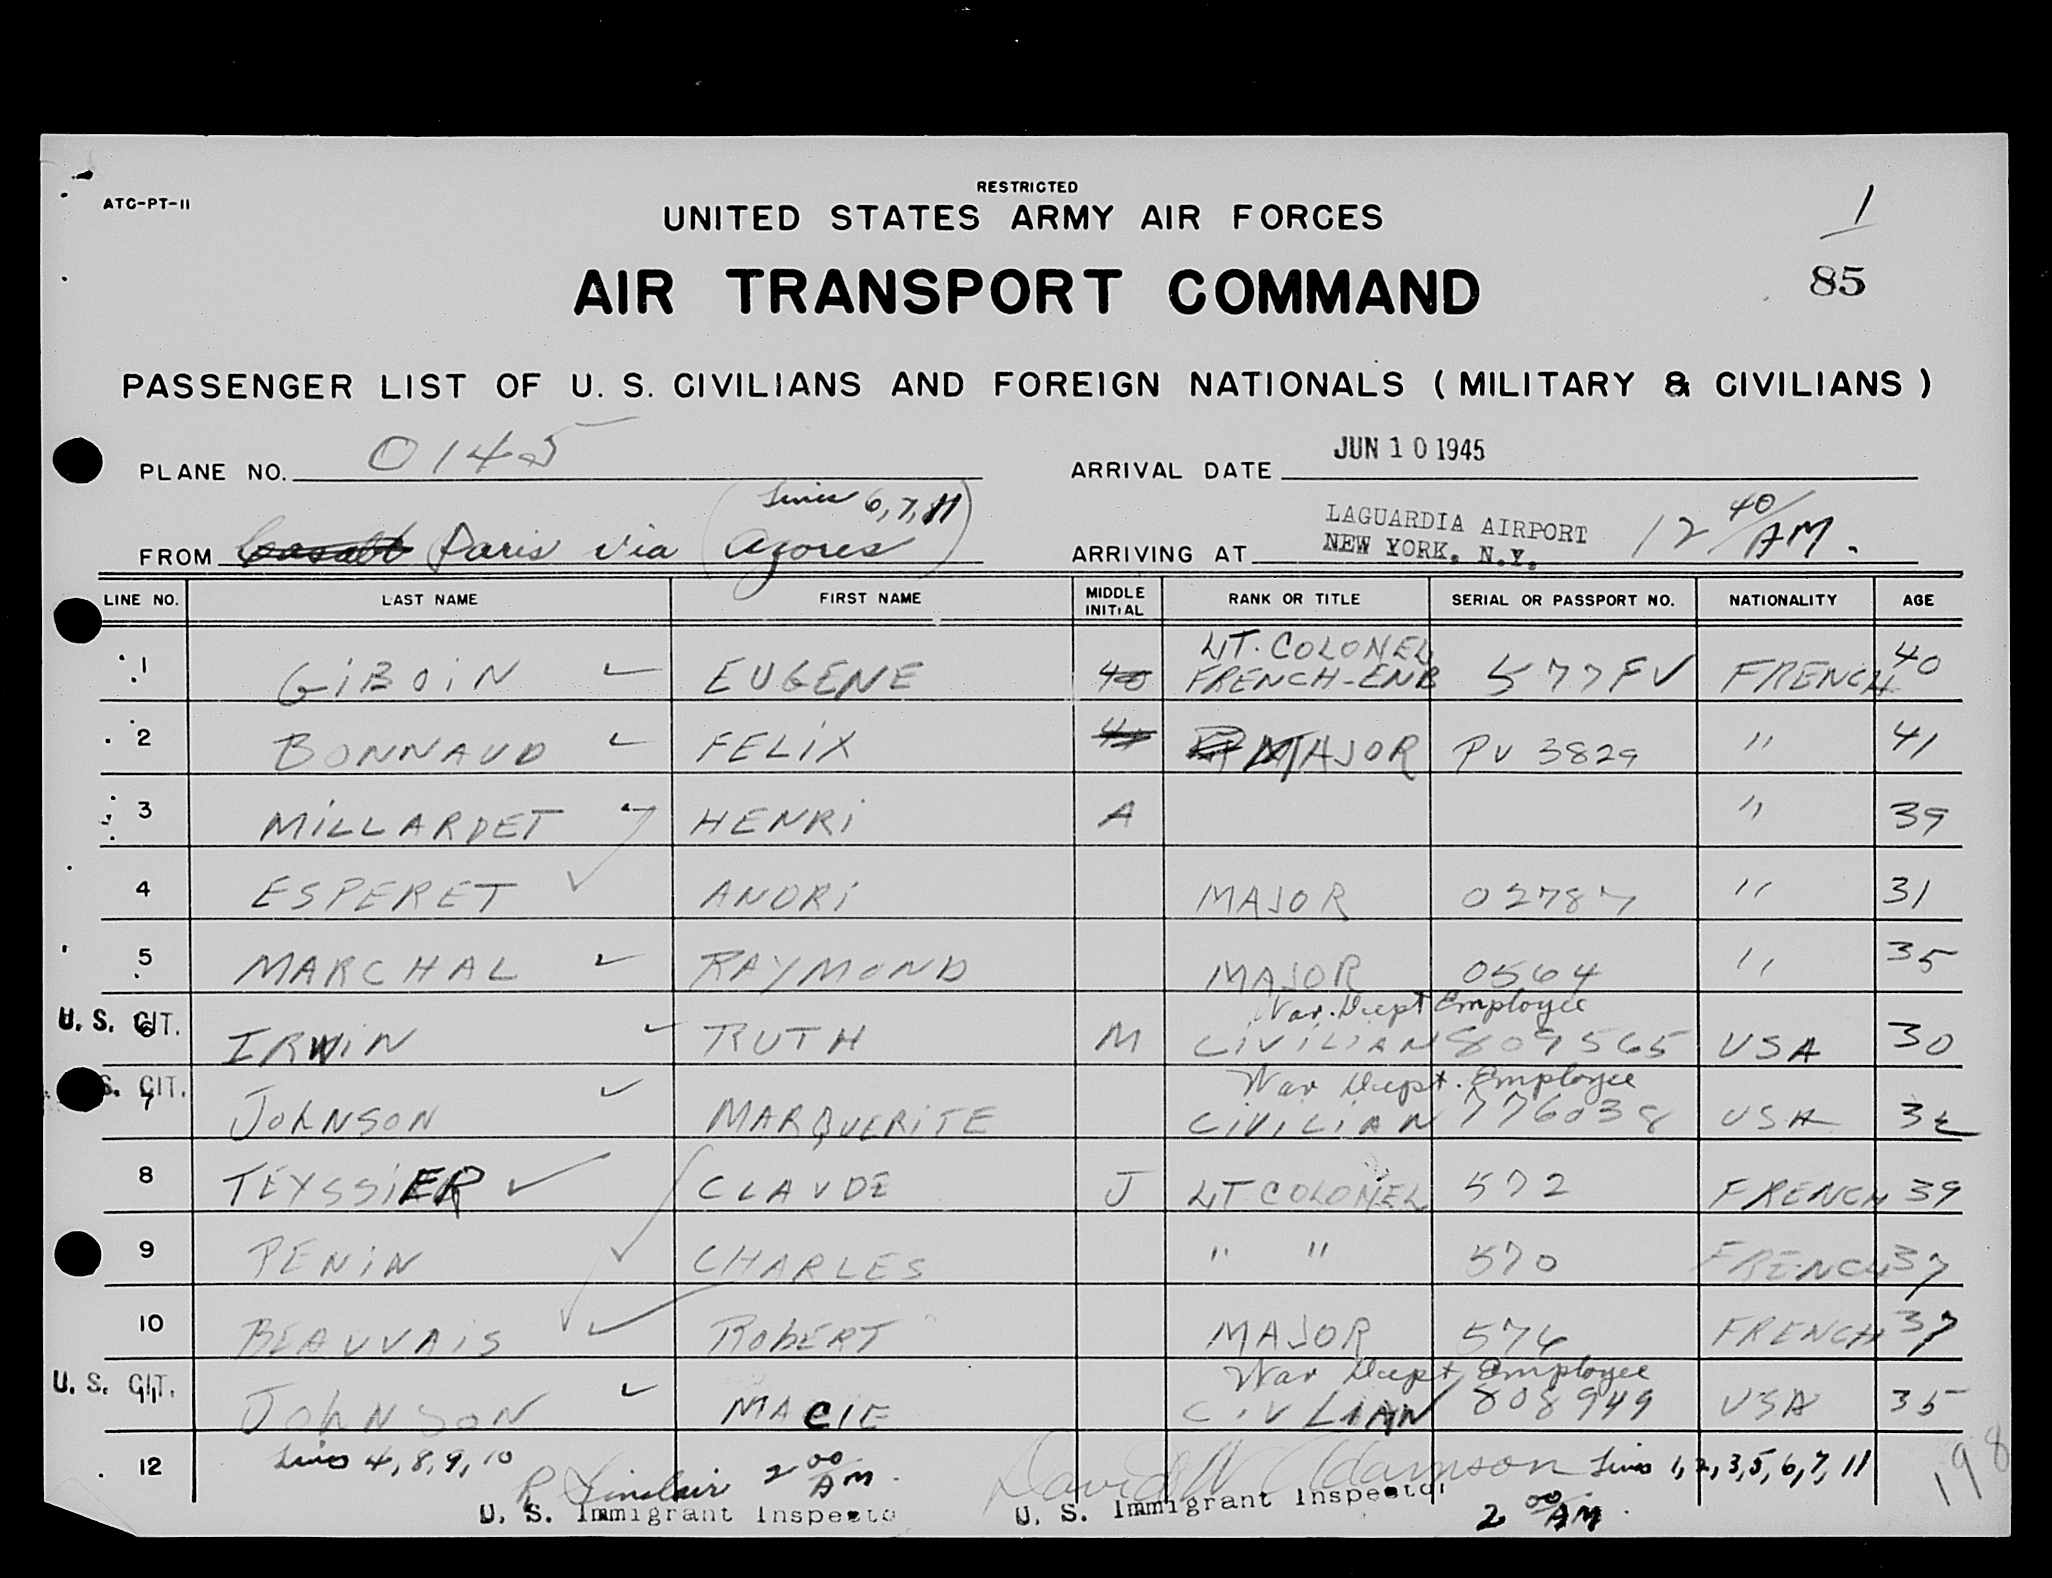 RESTRICTED
ATC-PT-11
UNITED STATES ARMY AIR FORCES
1
AIR TRANSPORT COMMAND
85
PASSENGER LIST OF U. S. CIVILIANS AND FOREIGN NATIONALS ( MILITARY & CIVILIANS )
PLANE NO. 0145 ARRIVAL DATE JUN 10 1945
(Lines 6, 7, 11)
FROM Paris via Azores ARRIVING AT LAGUARDIA AIRPORT NEW YORK, N.Y. 12 40/AM.
LINE NO. LAST NAME FIRST NAME MIDDLE INITIAL RANK OR TITLE SERIAL OR PASSPORT NO. NATIONALITY AGE
1 GIBOIN EUGENE 40 LT. COLONEL FRENCH-ENB 577FV FRENCH 40
2 BONNAUD FELIX 41 MAJOR PV 3829 " 41
3 MILLARDET HENRI A " 39
4 ESPERET ANDRI MAJOR 02787 " 31
5 MARCHAL RAYMOND MAJOR 0564 " 35
War. Dept Employee
U. S. CIT. 6 IRWIN RUTH M CIVILIAN 809565 USA 30
War Dept. Employee
S. CIT. 7 JOHNSON MARQUERITE CIVILIAN 776038 USA 32
8 TEYSSIER CLAUDE J LT COLONEL 572 FRENCH 39
9 PENIN CHARLES " " 570 FRENCH 37
10 BEAUVAIS ROBERT MAJOR 576 FRENCH 37
War Dept Employee
U. S. CIT. 11 JOHNSON MACIE CIVLIAN 808949 USA 35
12 Lines 4, 8, 9, 10 R Sinclair 2 00/AM. David W Adamson Lines 1, 2, 3, 5, 6, 7, 11 198
U. S. Immigrant Inspecto U. S. Immigrant Inspector 2 00/AM.